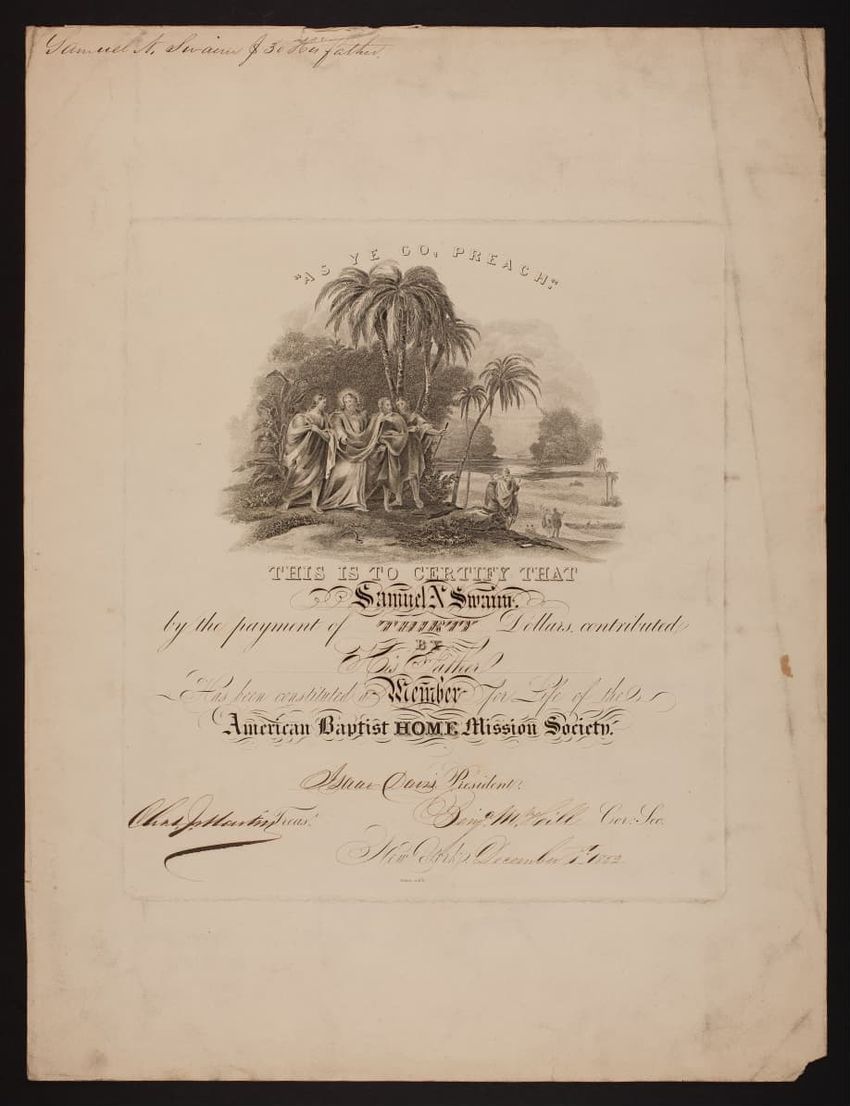 Samuel N. Swaim $30 His father.
"AS YE GO, PREACH."
THIS IS TO CERTIFY THAT
Samuel N Swaim.
by the payment of THIRTY Dollars, contributed
BY
His Father
Has been constituted a Member for Life of the
American Baptist HOME Mission Society.
Isaac Davis President.
Chas J. Martin Treas.r Benj.n M. Hill Cor: Sec.
New York, December 1st 1852